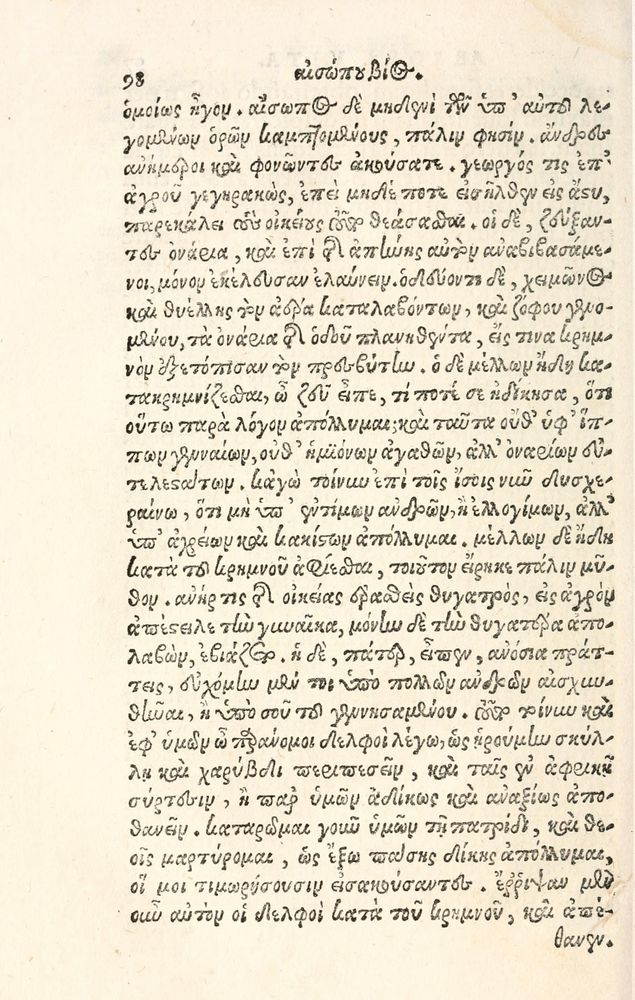 98 αἰσώπου βίος.
ὁμοίως ἦγον. αἴσωπος δὲ μηδενὶ τῶν ὑπ' αὐτοῦ λε-
γομένων ὁρῶν καμπτομένους, πάλιν φησίν. ἄνδρες
ἀνήμεροι καὶ φονῶντες ἀκούσατε. γεωργός τις ἐπ'
ἀγροῦ γεγηρακὼς, ἐπεὶ μηδέποτε εἰσῆλθεν εἰς ἄστυ,
παρεκάλει τοὺς οἰκείους τοῦτο θεάσασθαι. οἱ δὲ, ζεύξαν-
τες ὀνάρια, καὶ ἐπὶ τῆς ἀπήνης αὐτὸν ἀναβιβασάμε-
νοι, μόνον ἐκέλευσαν ἐλαύνειν. ὁδεύοντι δὲ, χειμῶνος
καὶ θυέλλης τὸν ἀέρα καταλαβόντων, καὶ ζόφου γενο-
μένου, τὰ ὀνάρια τῆς ὁδοῦ πλανηθέντα, εἴς τινα κρημ-
νὸν ἐξετόπισαν τὸν πρεσβύτην. ὁ δὲ μέλλων ἤδη κα-
τακρημνίζεσθαι, ὦ ζεῦ εἶπε, τί ποτέ σε ἠδίκησα, ὅτι
οὕτω παρὰ λόγον ἀπόλλυμαι; καὶ ταῦτα οὔθ' ὑφ' ἵπ-
πων γενναίων, οὔθ' ἡμιόνων ἀγαθῶν, ἀλλ' ὀναρίων εὐ-
τελεστάτων. κἀγὼ τοίνυν ἐπὶ τοῖς ἴσοις νῦν δυσχε-
ραίνω, ὅτι μὴ ὑπ' ἐντίμων ἀνδρῶν, ἢ ἐλλογίμων, ἀλλ'
ὑπ' ἀχρείων καὶ κακίστων ἀπόλλυμαι. μέλλων δὲ ἤδη
κατὰ τοῦ κρημνοῦ ἀφίεσθαι, τοιοῦτον εἴρηκε πάλιν μῦ-
θον. ἀνήρ τις τῆς οἰκείας ἐρασθεὶς θυγατρὸς, εἰς ἀγρὸν
ἀπέστειλε τὴν γυναῖκα, μόνην δὲ τὴν θυγατέρα ἀπο-
λαβὼν, ἐβιάζετο. ἡ δὲ, πάτερ, εἶπεν, ἀνόσια πράτ-
τεις, εὐχόμην μέν τοι ὑπὸ πολλῶν ἀνδρῶν αἰσχυν-
θῆναι, ἢ ὑπὸ σοῦ τοῦ γεννησαμένου. τοῦτο τοίνυν καὶ
ἐφ' ὑμῶν ὦ παράνομοι δελφοὶ λέγω, ὡς ᾑρούμην σκύλ-
λῃ καὶ χαρύβδει περιπεσεῖν, καὶ ταῖς ἐν ἀφρικῇ
σύρτεσιν, ἢ παρ' ὑμῶν ἀδίκως καὶ ἀναξίως ἀπο-
θανεῖν. καταρῶμαι γοῦν ὑμῶν τῇ πατρίδι, καὶ θε-
οῖς μαρτύρομαι, ὡς ἔξω πάσης δίκης ἀπόλλυμαι,
οἵ μοι τιμωρήσουσιν εἰσακούσαντες. ἔρριψαν μὲν
οὖν αὐτὸν οἱ δελφοὶ κατὰ τοῦ κρημνοῦ, καὶ ἀπέ-
θανεν.